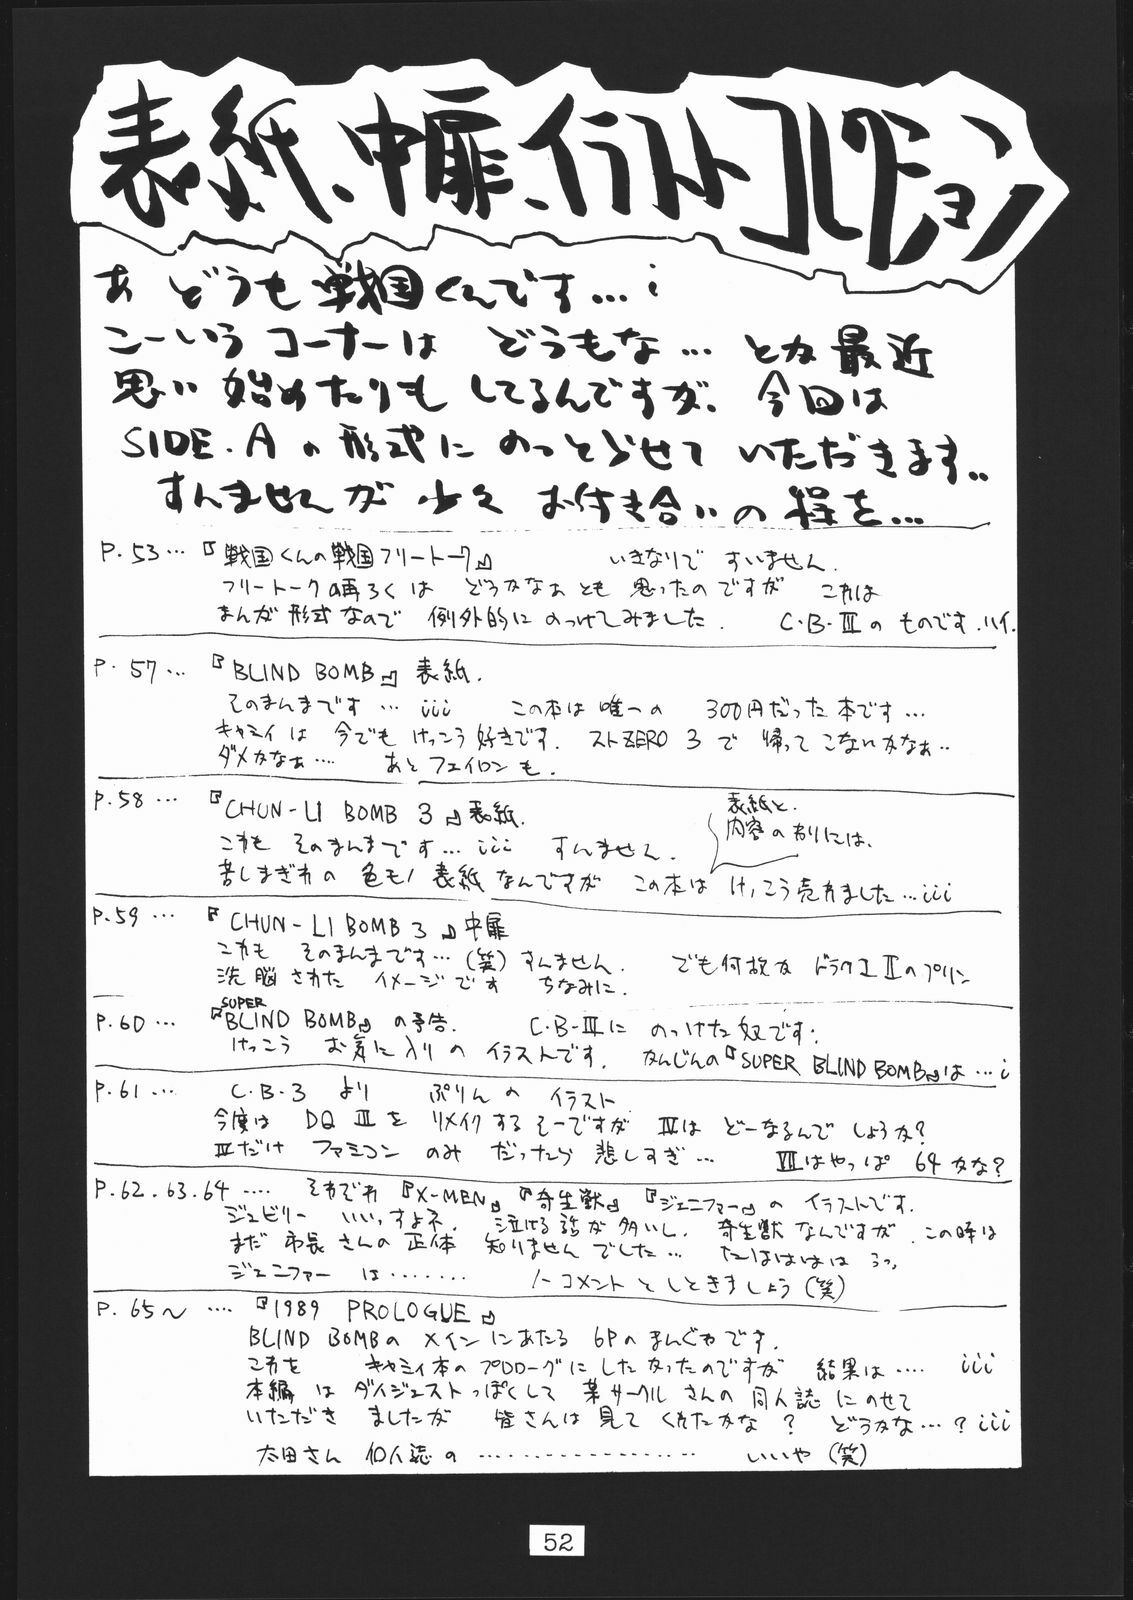 表紙、中扉、イラストコレクション
あ どうも戦国くんです…
こーいうコーナーは どうもな… とか最近
思い始めたりも してるんですが、今回は
SIDE.A の形式に のっとらせて いただきます..
すんませんが 少々 お付き合いの 程を…
P.53… 『戦国くんの戦国フリートーク』 いきなりで すいません.
フリートークの再ろくは どうかなぁとも 思ったのですが これは
まんが形式なので 例外的に のっけてみました. C.B.IIIの ものです.ハイ.
P.57… 『BLIND BOMB』表紙.
そのまんまです… iii この本は唯一の 300円だった本です…
キャミィは 今でも けっこう好きです. ストZERO 3で 帰ってこないかなぁ..
ダメかなぁ… あとフェイロンも.
P.58… 『CHUN-LI BOMB 3』表紙.
表紙と.
内容のわりには、
これも そのまんまです… iii すんません.
苦しまぎれの 色モノ表紙なんですが この本は けっこう売れました…iii
P.59… 『CHUN-LI BOMB 3』中扉
これも そのまんまです…(笑) すんません. でも何故か ドラクエIIのプリン
洗脳された イメージです ちなみに.
P.60… 『SUPER BLIND BOMB』の予告. C.B-IIIに のっけた奴です.
けっこう お気に入りの イラストです. かんじんの『SUPER BLIND BOMB』は…i
P.61… C.B.3より ぷりんの イラスト
今度は DQ IIIを リメイクするそーですが IVは どーなるんでしょうか?
IVだけ ファミコン のみ だったら 悲しすぎ… VIIはやっぱ 64かな?
P.62.63.64…. それぞれ『X-MEN』『寄生獣』『ジェニファー』の イラストです.
ジュビリー いいっすよネ. 泣ける話が多いし. 寄生獣なんですが、この時は
まだ 市長さんの正体 知りませんでした… たはははは うっ,
ジェニファー は……. ノーコメントとしときましょう(笑)
P.65〜 …. 『1989 PROLOGUE』
BLIND BOMBの メインにあたる 6Pのまんがです.
これを キャミィ本のプロローグにしたかったのですが 結果は…. iii
本編は ダイジェストっぽくして 某サークルさんの同人誌にのせて
いただきましたが 皆さんは見てくれたかな? どうかな…? iii
太田さん 個人誌の …………… いいや(笑)
52